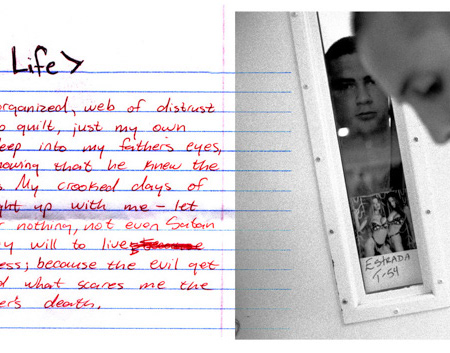 Life>
organized, web of distrust
guilt, just my own
deep into my fathers eyes,
nowing that he knew the
My crooked days of
ght up with me – let
nothing, not even Satain
will to live
ess; because the evil get
what scares me the
er's death.
ESTRADA
T-54